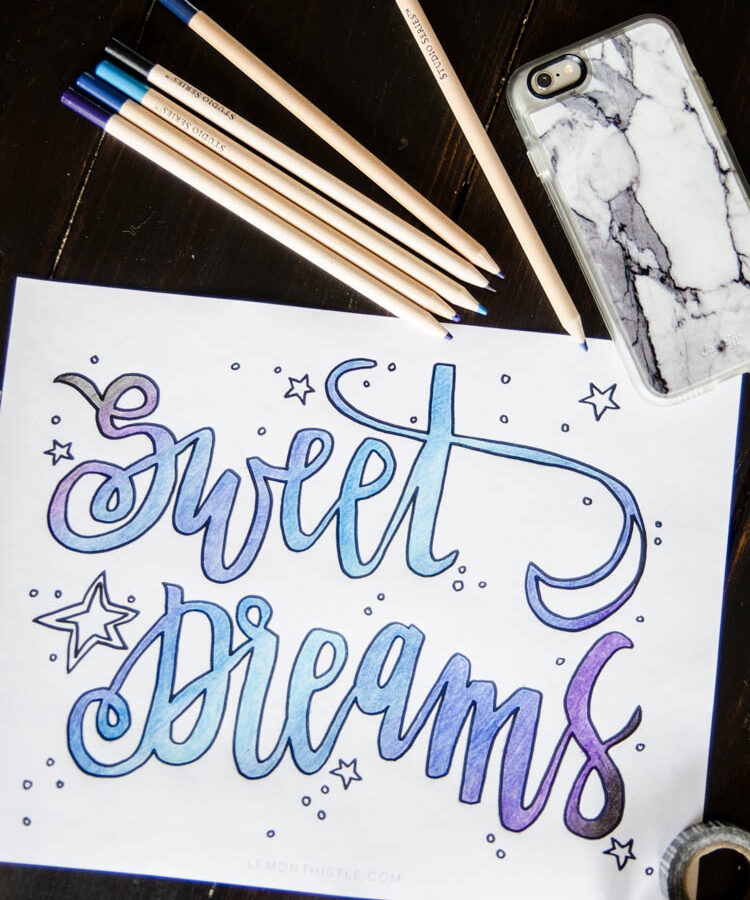 STUDIO SERIES™
STUDIO SERIES™
STUDIO SERIES™
Sweet
Dreams
LEMONTHISTLE.COM